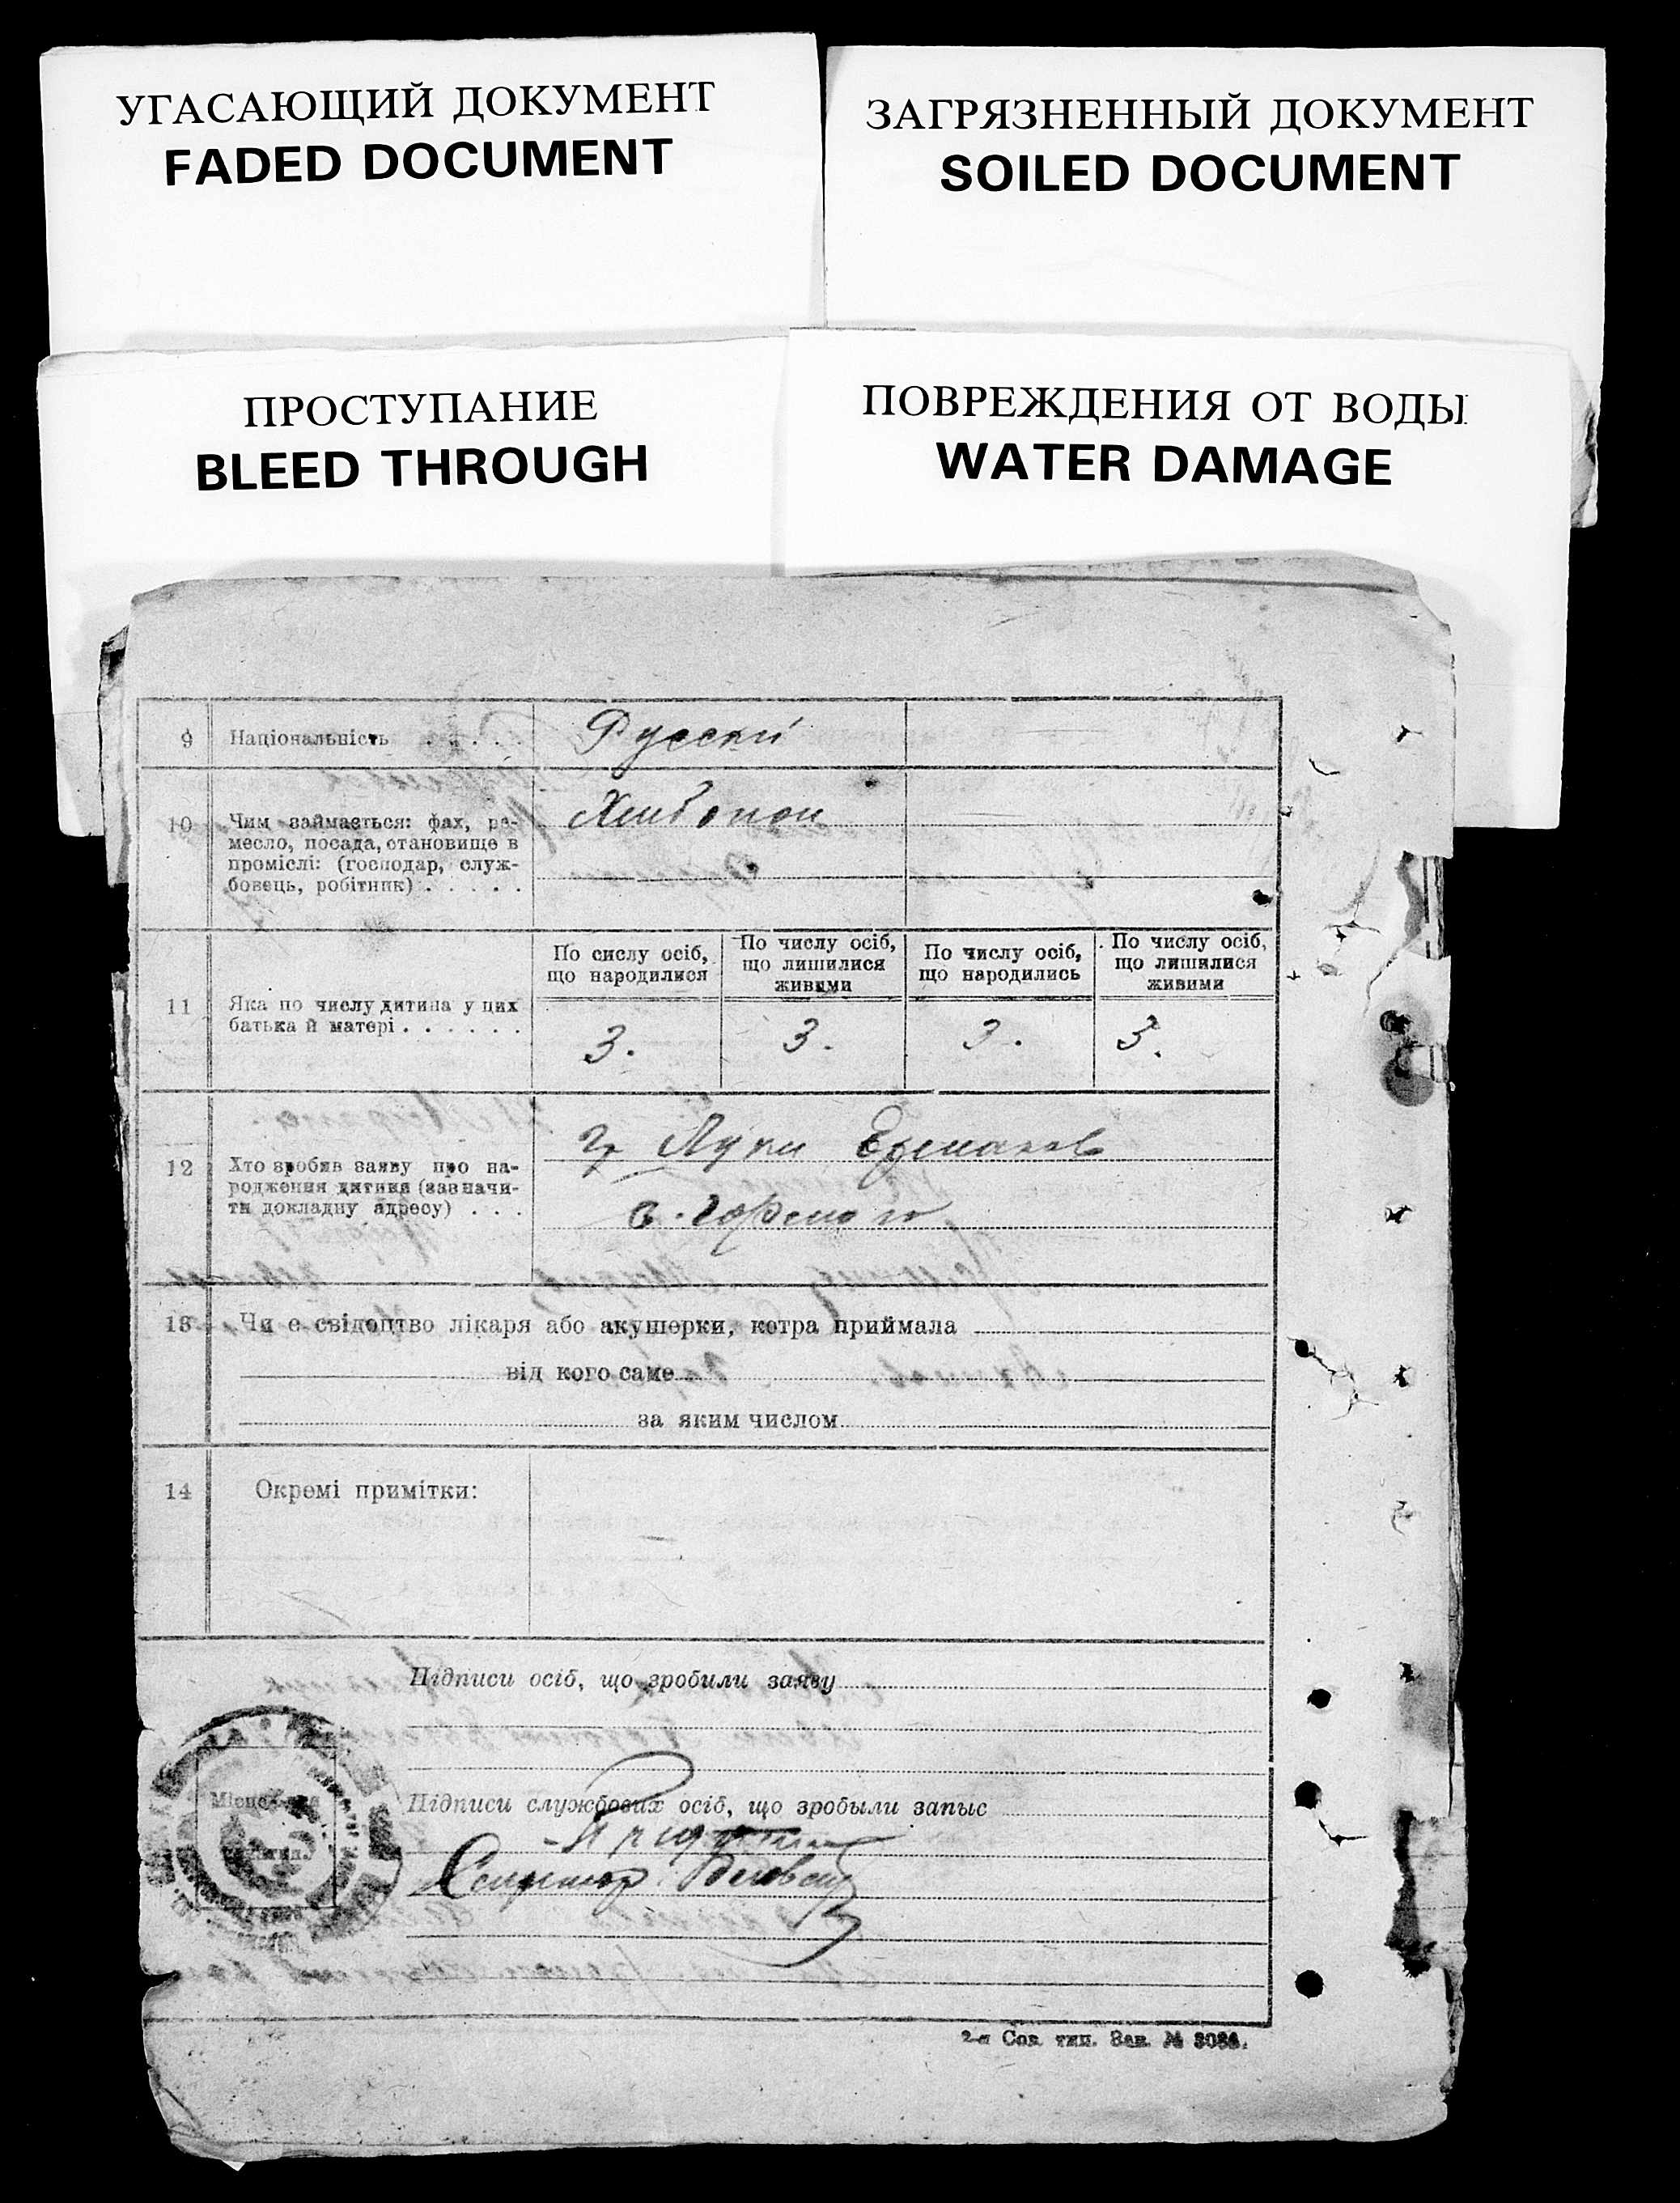 УГАСАЮЩИЙ ДОКУМЕНТ
FADED DOCUMENT
ЗАГРЯЗНЕННЫЙ ДОКУМЕНТ
SOILED DOCUMENT
ПРОСТУПАНИЕ
BLEED THROUGH
ПОВРЕЖДЕНИЯ ОТ ВОДЫ
WATER DAMAGE
9 Національність . . . . . Русскі
10 Чим займається: фах, ре-
месло, посада, становище в
проміслі: (господар, служ-
бовець, робітник) . . . . .
11 Яка по числу дитина у цих
батька й матері . . . . . .
По сислу осіб,
що народилися
По числу осіб,
що лишилися
живими
По числу осіб,
що народились
По числу осіб,
що лишилися
живими
3. 3. 3. 3.
12 Хто зробив заяву про на-
родження дитини (зазначи-
ти докладну адресу) . . .
13 Чи є свідоцтво лікаря або акушерки, котра приймала
від кого саме
за яким числом
14 Окремі примітки:
Підписи осіб, що зробили заяву
Підписи службових осіб, що зробыли запыс
2-я Сов. тип. Зак. №